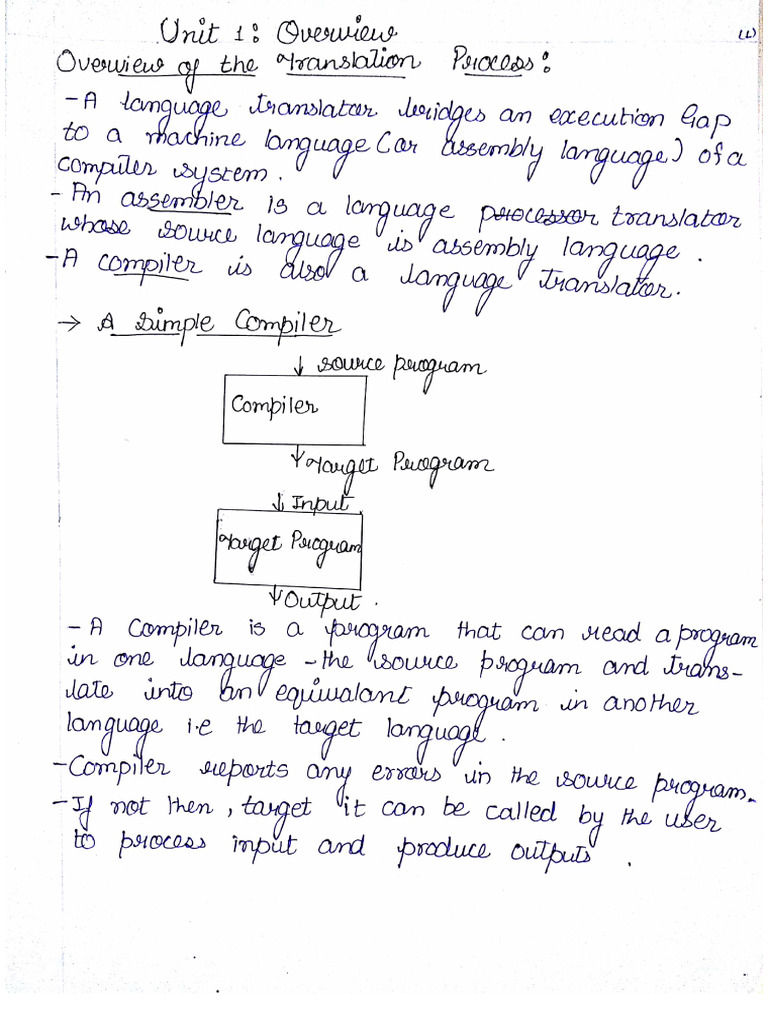 Unit 1: Overview
(1)
Overview of the Translation Process:
- A language translator bridges an execution Gap
to a machine language (or assembly language) of a
computer system.
- An assembler is a language processor translator
whose source language is assembly language.
- A compiler is also a language translator.
→ A Simple Compiler
↓ source program
Compiler
↓ Target Program
↓ Input
Target Program
↓ Output.
- A Compiler is a program that can read a program
in one language - the source program and trans-
late into an equiwalant program in another
language i.e the target language.
- Compiler reports any errors in the source program.
- If not then, target it can be called by the user
to process input and produce outputs.